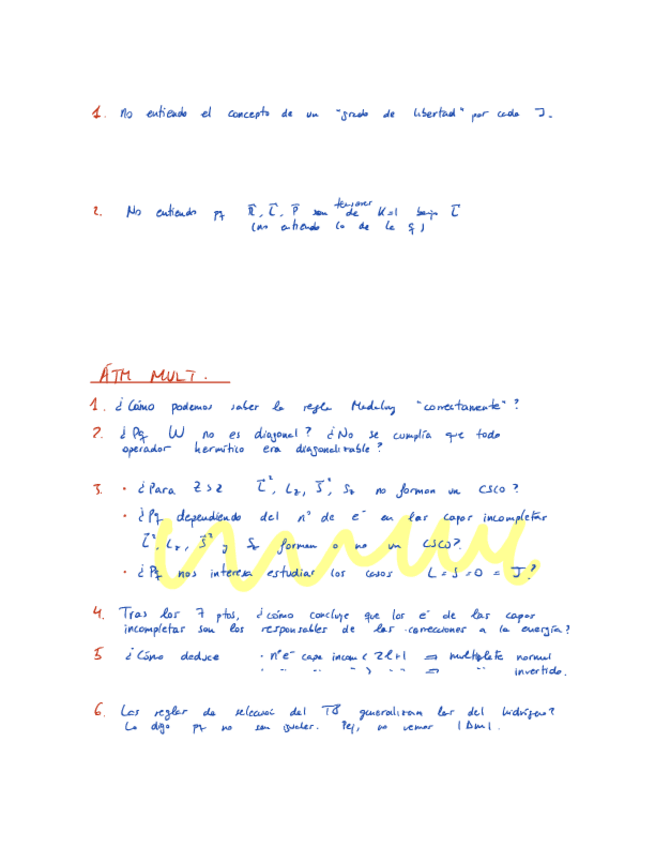 1. No entiendo el concepto de un "grado de libertad" por cada J.
2. No entiendo pq R⃗, L⃗, P⃗ son tensores de K=1 bajo L⃗
(no entiendo lo de le q)
ÁTM MULT.
1. ¿Cómo podemos saber la regla Madelung "correctamente"?
2. ¿Pq W no es diagonal? ¿No se cumplía que todo
operador hermítico era diagonalizable?
3. • ¿Para Z>2 L⃗², Lz, S⃗², Sz no forman un CSCO?
• ¿Pq dependiendo del nº de e⁻ en las capas incompletas
L⃗², Lz, S⃗² y Sz forman o no un CSCO?
• ¿Pq nos interesa estudiar los casos L=S=0=J?
4. Tras los 7 ptos, ¿cómo concluye que los e⁻ de las capas
incompletas son los responsables de las correcciones a la energía?
5 ¿Cómo deduce • nºe⁻ capa incom < 2l+1 ⇒ multiplete normal
" " " " > " " ⇒ " invertido.
6. Las reglas de selección del TB generalizan las del hidrógeno?
Lo digo pq no son iguales. Pej, no vemos |Δm|.